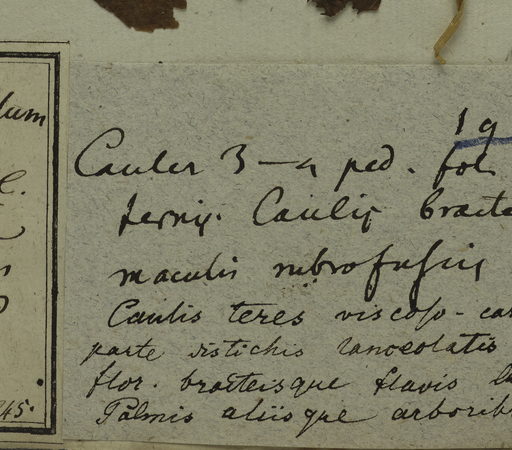 lum
e.
19
Caules 3-4 ped. fol
ternis. Caulis bracte
maculis rubrofuscis
Caulis teres viscoso-car
parte distichis lanceolatis
flor. bracteisque flavis la
Palmis aliisque arborib
845.